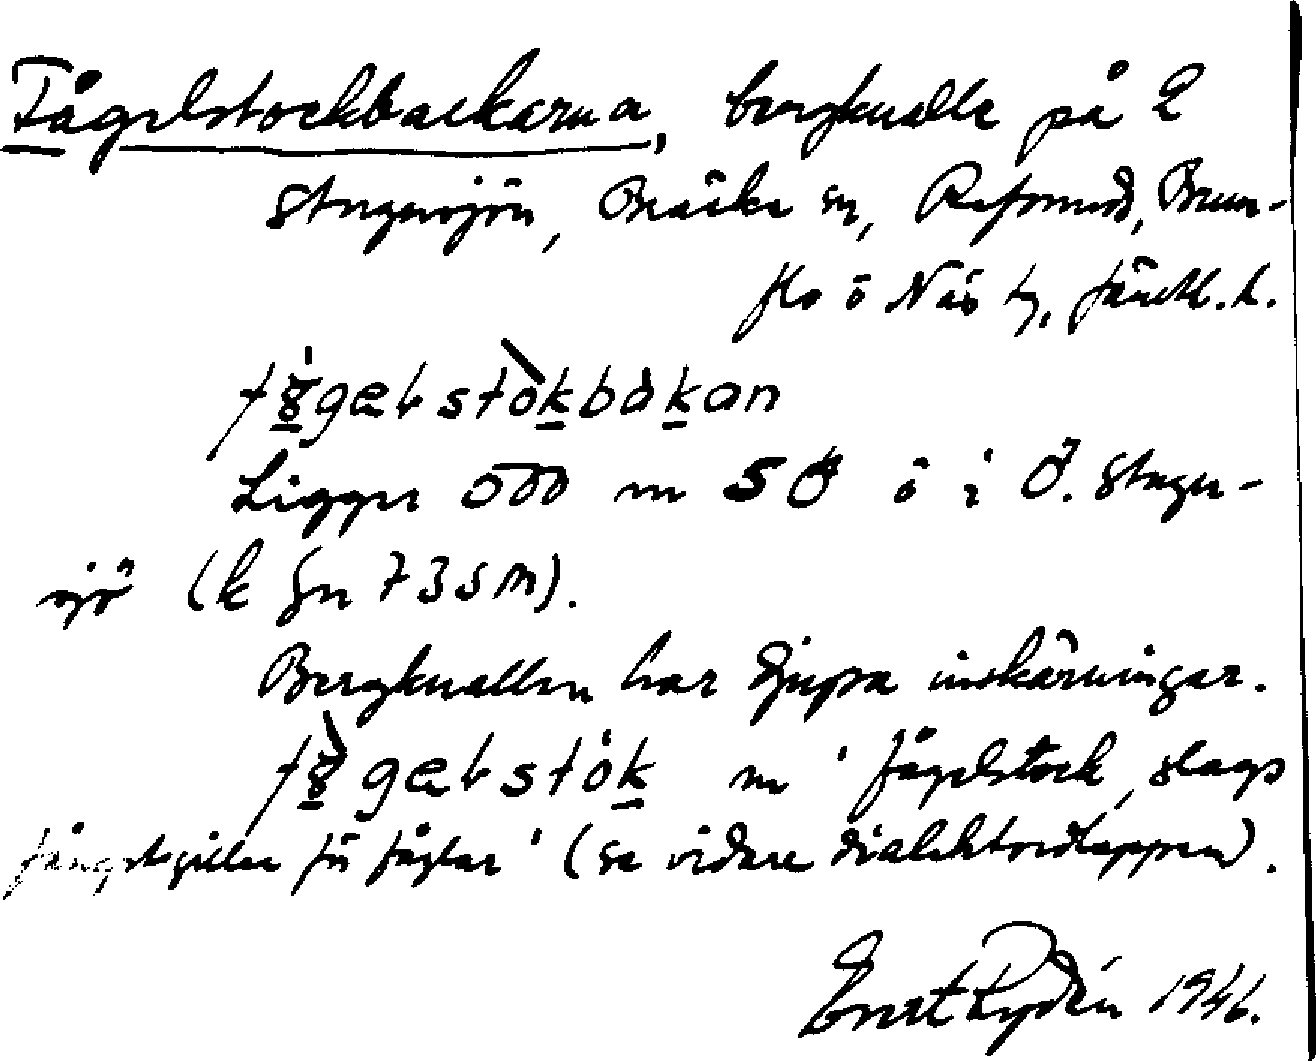 Fågelstockbackarna, bergknalle på 2
Stugusjön, Bräcke sn, Refsunds, Brun-
flo o Näs tg, Jämtl. l.
Ligger 500 m SÖ o i Ö. Stugu-
sjö (k fn 73 SM).
Bergknallen har djupa inskärningar.
m 'fågelstock, slags
fångstgiller för fåglar' (se vidare dialektordlappen).
Evert Rydén 1946.